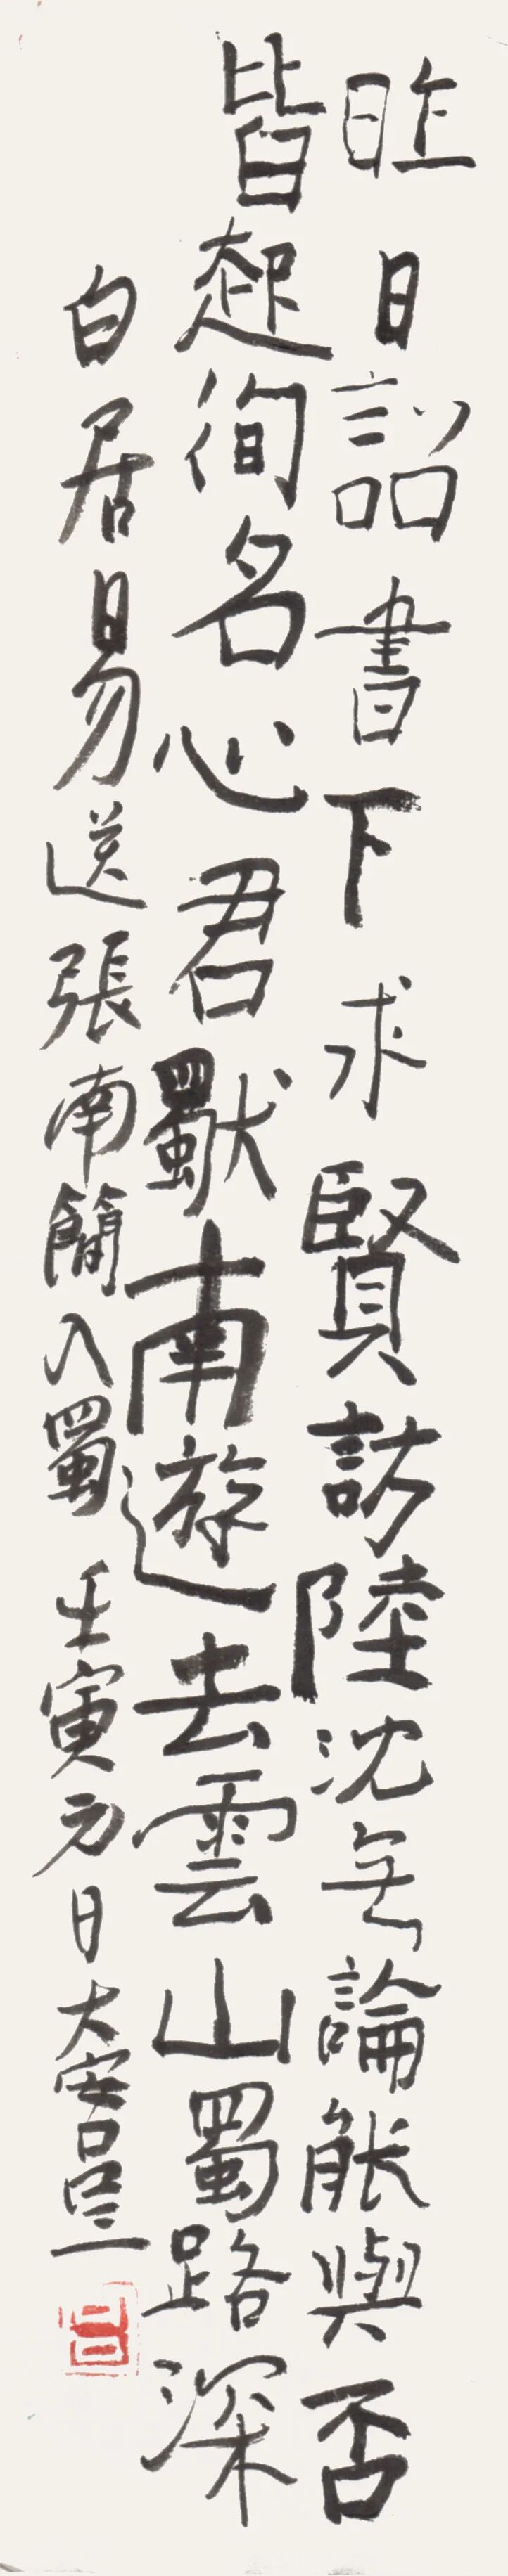 昨日詔書下求賢訪陸沈無論能與否
皆起徇名心君獨南遊去雲山蜀路深
白居易送張南簡入蜀 壬寅方日大安